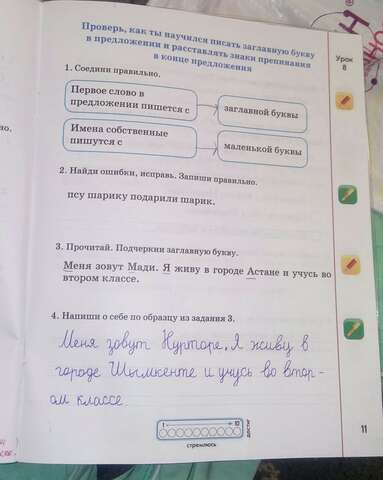 Проверь, как ты научился писать заглавную букву
в предложении и расставлять знаки препинания
в конце предложения
Урок
8
1. Соедини правильно.
Первое слово в
предложении пишется с
заглавной буквы
Имена собственные
пишутся с
маленькой буквы
2. Найди ошибки, исправь. Запиши правильно.
псу шарику подарили шарик.
3. Прочитай. Подчеркни заглавную букву.
Меня зовут Мади. Я живу в городе Астане и учусь во
втором классе.
4. Напиши о себе по образцу из задания 3.
Меня зовут Нурторе. Я живу в
городе Шымкенте и учусь во втор-
ом классе
1 10
стремлюсь
достиг
11